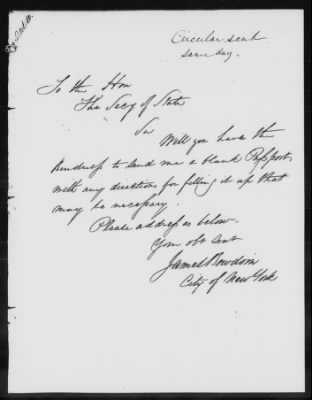 Circular sent
same day.
To the Hon
The Secy of State
Sir
Will you have the
kindness to send me a blank Passport
with any directions for filling it up that
may be necessary.
Please address as below.
Your obt Servt
James Bowdoin
City of New York